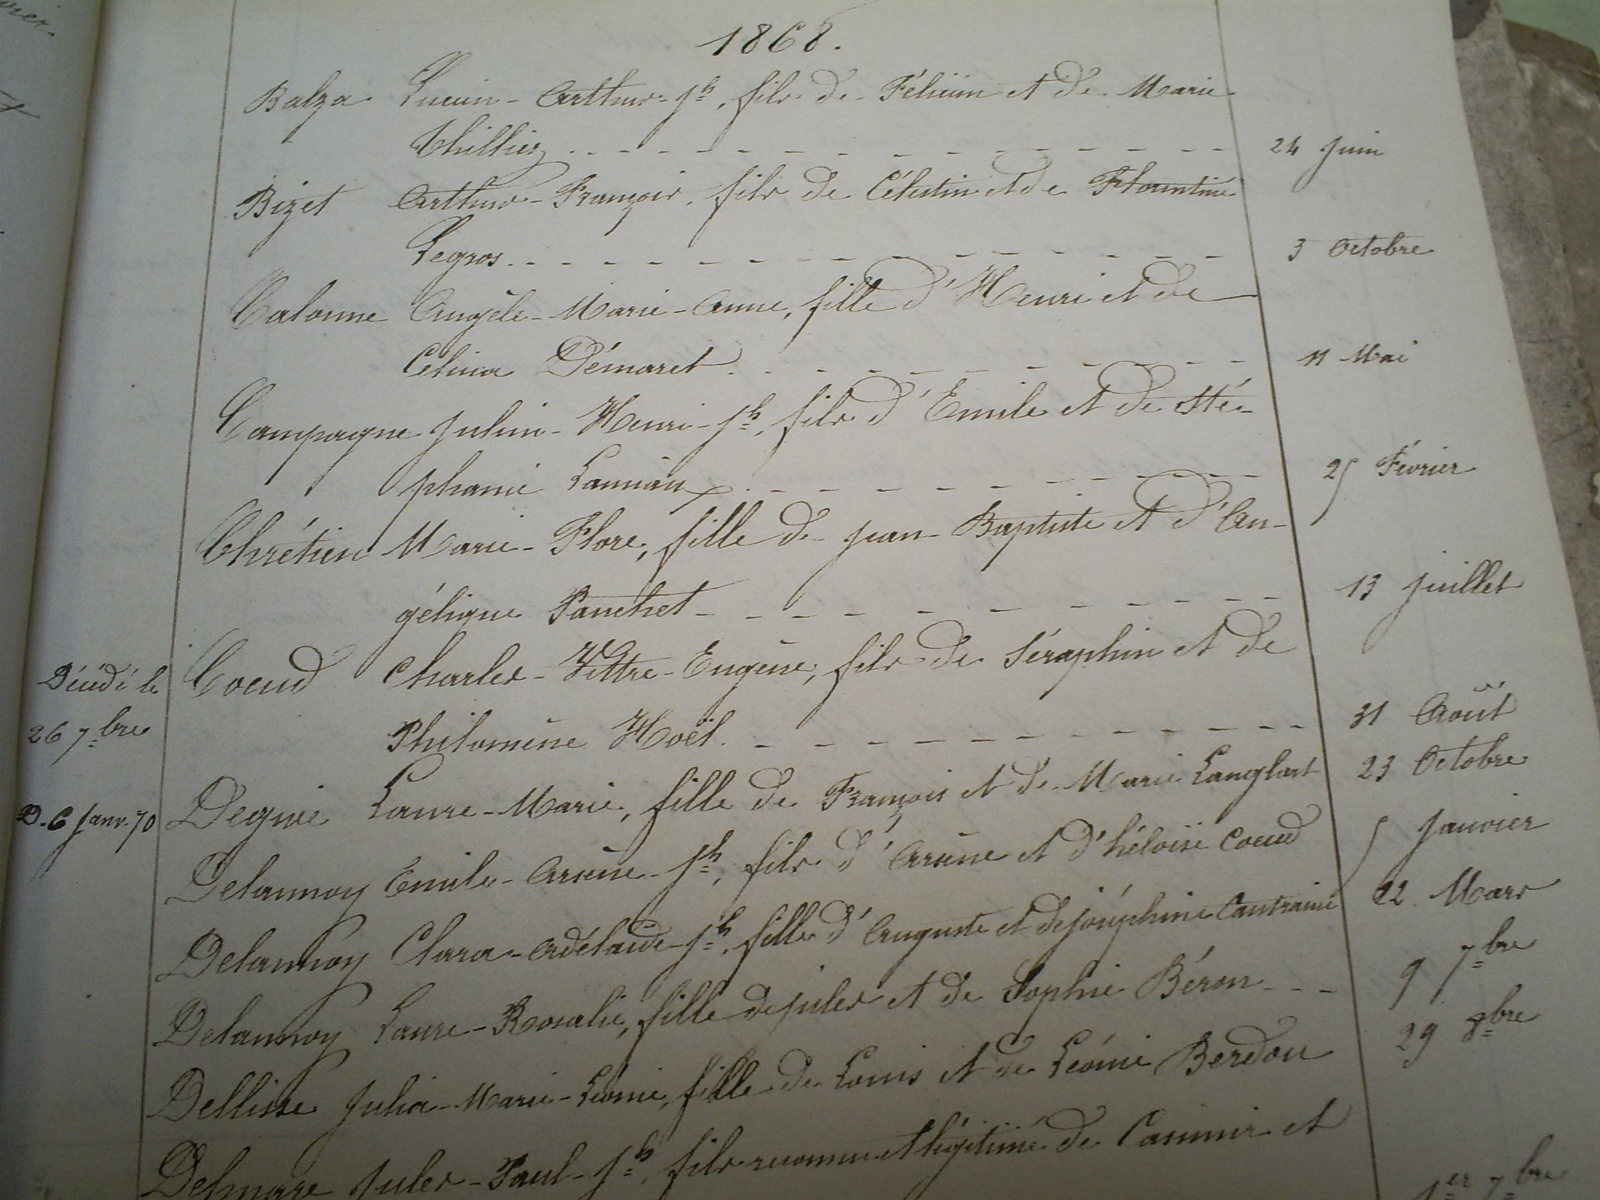 1868.
Balza Lucien - Arthur - Jh, fils de Félicien et de Marie
Thilliez 24 Juin
Bizet Arthur - François, fils de Célestin et de Florentine
Legros 3 Octobre
Calonne Angèle - Marie - Anne, fille d'Henri et de
Célina Démaret 11 Mai
Campagne Julien - Henri - Jh, fils d'Emile et de Sté-
phanie Lanniaux 25 Février
Chrétien Marie - Flore, fille de Jean - Baptiste et d'An-
gélique Panchet 13 Juillet
Décédé le Coeud Charles - Victre - Eugène, fils de Séraphin et de
26 7bre Philomène Hoël 31 Août
D. 6 Janv. 70 Degnie Laure - Marie, fille de François et de Marie Langlart 23 Octobre
Delannoy Emile - Arsène - Jh, fils d'Arsène et d'héloïse Coeud 5 Janvier
Delannoy Clara - Adélaïde - Jh, fille d'Auguste et de joséphine Cantraine 22 Mars
Delannoy Laure - Rosalie, fille de jules et de Sophie Béron 9 7bre
Dellisse Julia - Marie - Léonie, fille de Louis et de Léonie Berdou 29 8bre
Delmare Jules - Paul - Jh, fils reconnu et légitimé de Casimir et
1er 7bre